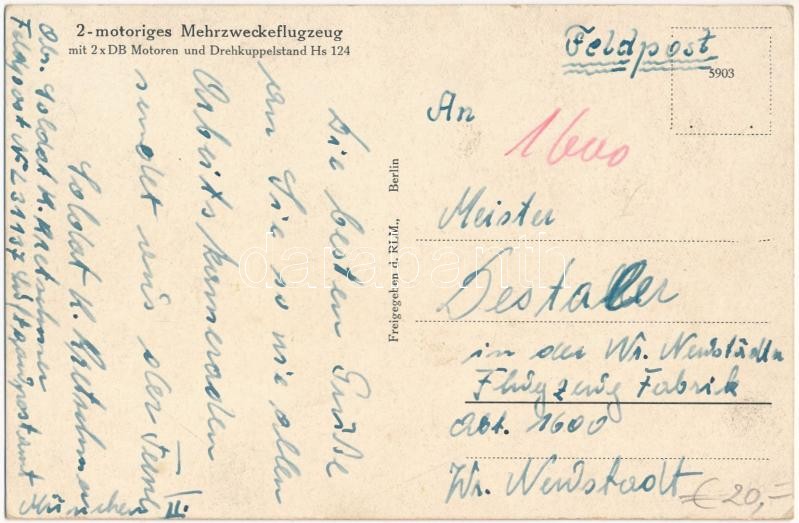 2-motoriges Mehrzweckeflugzeug
mit 2 x DB Motoren und Drehkuppelstand Hs 124
Feldpost
5903
An
1600
Meister
Destaller
in der Wr. Neustädter
Flugzeug Fabrik
Abt. 1600
Wr. Neustadt
€ 20,-
Freigegeben d. RLM., Berlin
Die besten Grüße
an Sie so wie allen
Arbeitskameraden
sendet aus der
Soldat K.
Abs. Soldat K.
Feldpost N L 31137 Luftgaupostamt
München II.
darabanth